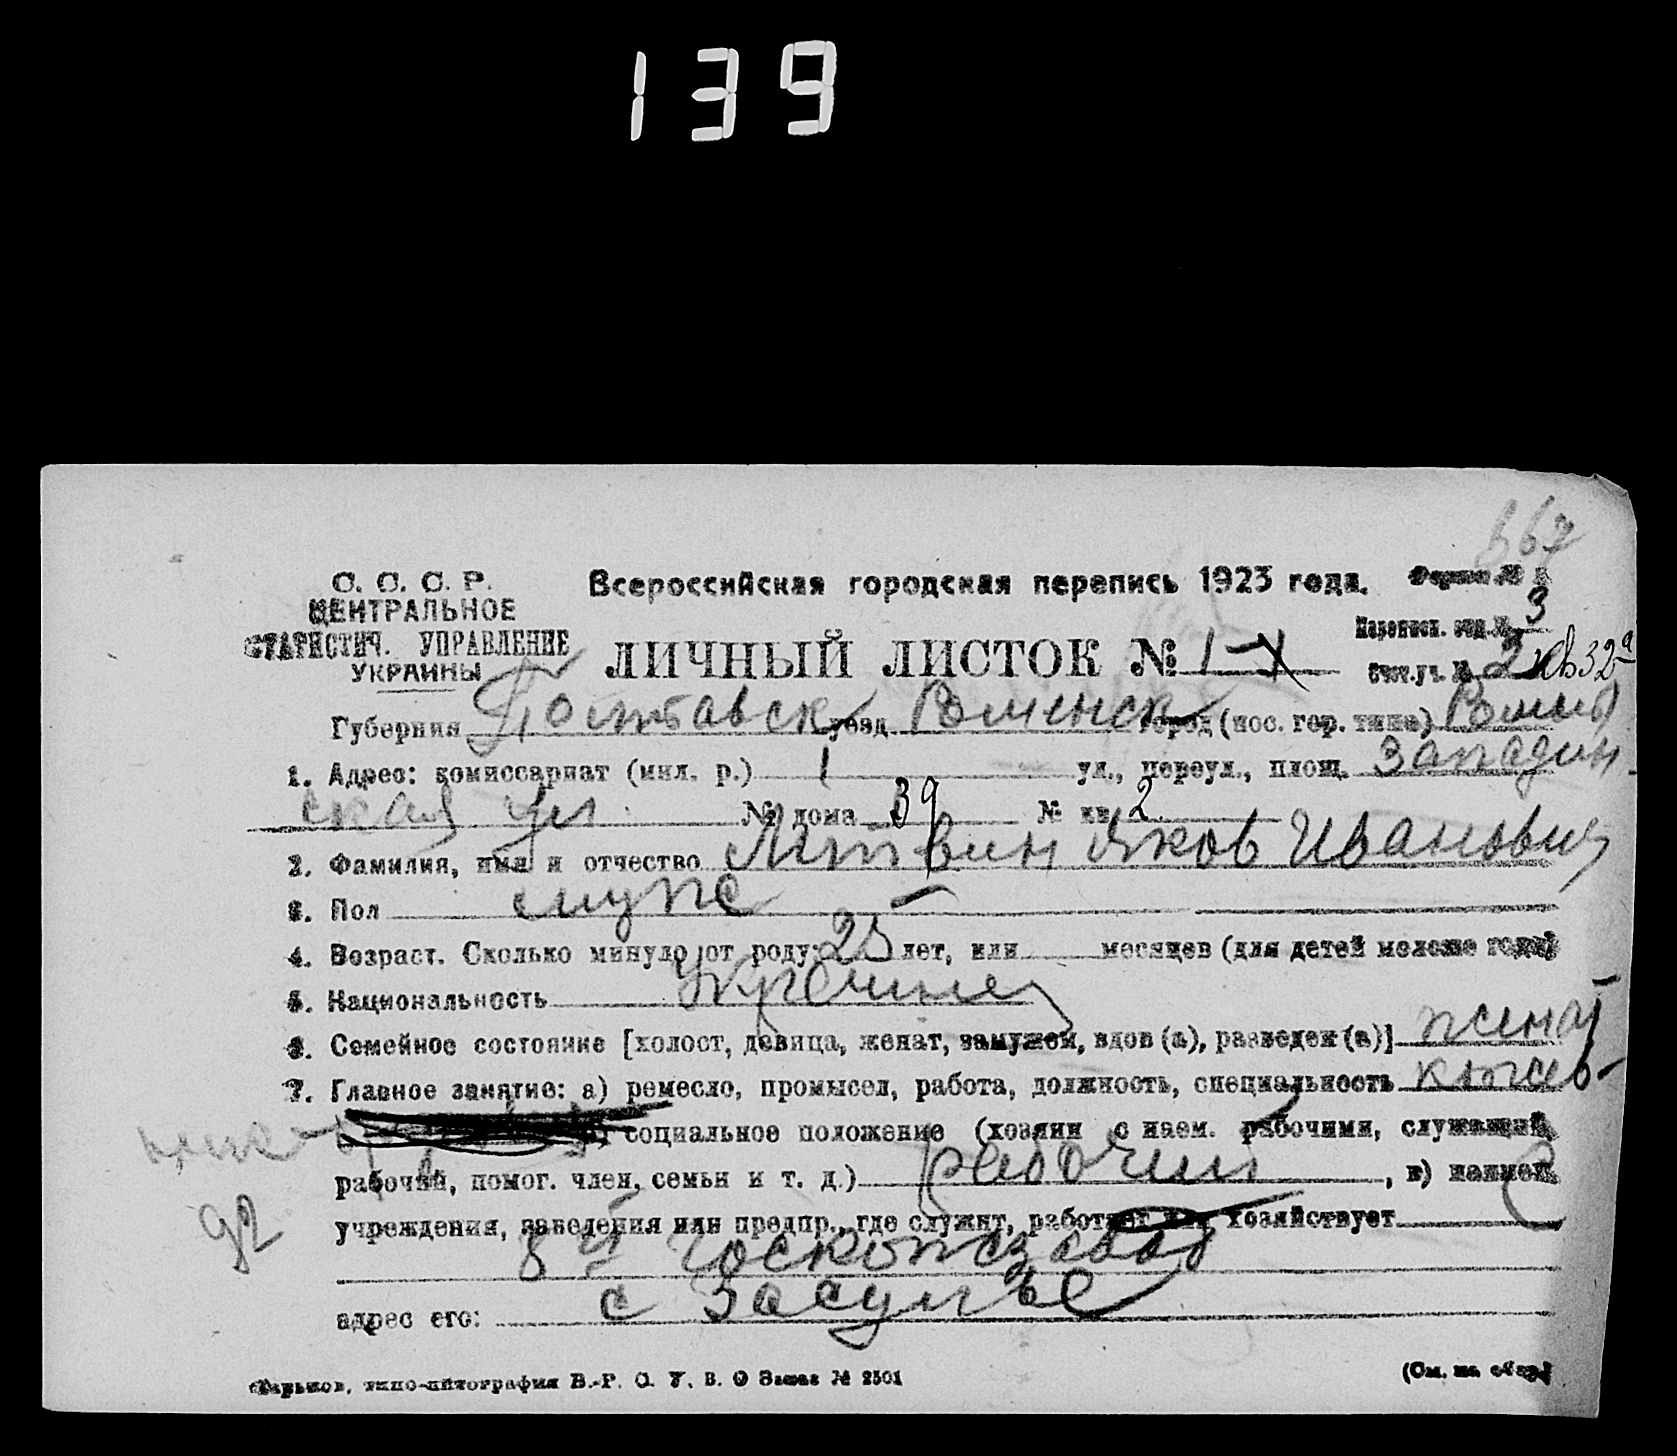 139
667
С. С. С. Р.
ЦЕНТРАЛЬНОЕ
СТАТИСТИЧ. УПРАВЛЕНИЕ
УКРАИНЫ
Всероссийская городская перепись 1923 года. Форма № 1
Переписн. отд. № 3
ЛИЧНЫЙ ЛИСТОК № 1
Счет. уч. № 2 кв 32а
Губерния Полтавск уезд Роменск город (пос. гор. типа) Ромны
1. Адрес: комиссариат (мил. р.) 1 ул., переул., площ. Западин
ская ул № дома 39 № кв 2
2. Фамилия, имя и отчество Литвин Яков Иванович
3. Пол муж
4. Возраст. Сколько минуло от роду: 25 лет, или месяцев (для детей моложе года)
5. Национальность Украинец
6. Семейное состояние [холост, девица, женат, замужем, вдов (а), разведен (а)] женат
7. Главное занятие: а) ремесло, промысел, работа, должность, специальность кожев
социальное положение (хозяин с наем. рабочими, служащий,
рабочий, помог. член. семьи и т. д.) рабочий, в) наимен.
92
учреждения, заведения или предпр., где служит, работает или хозяйствует
8й Госкожзавод
адрес его: с Засулье
Харьков, типо-литография В.-Р. С. У. В. О Заказ № 2501 (См. на обор.)